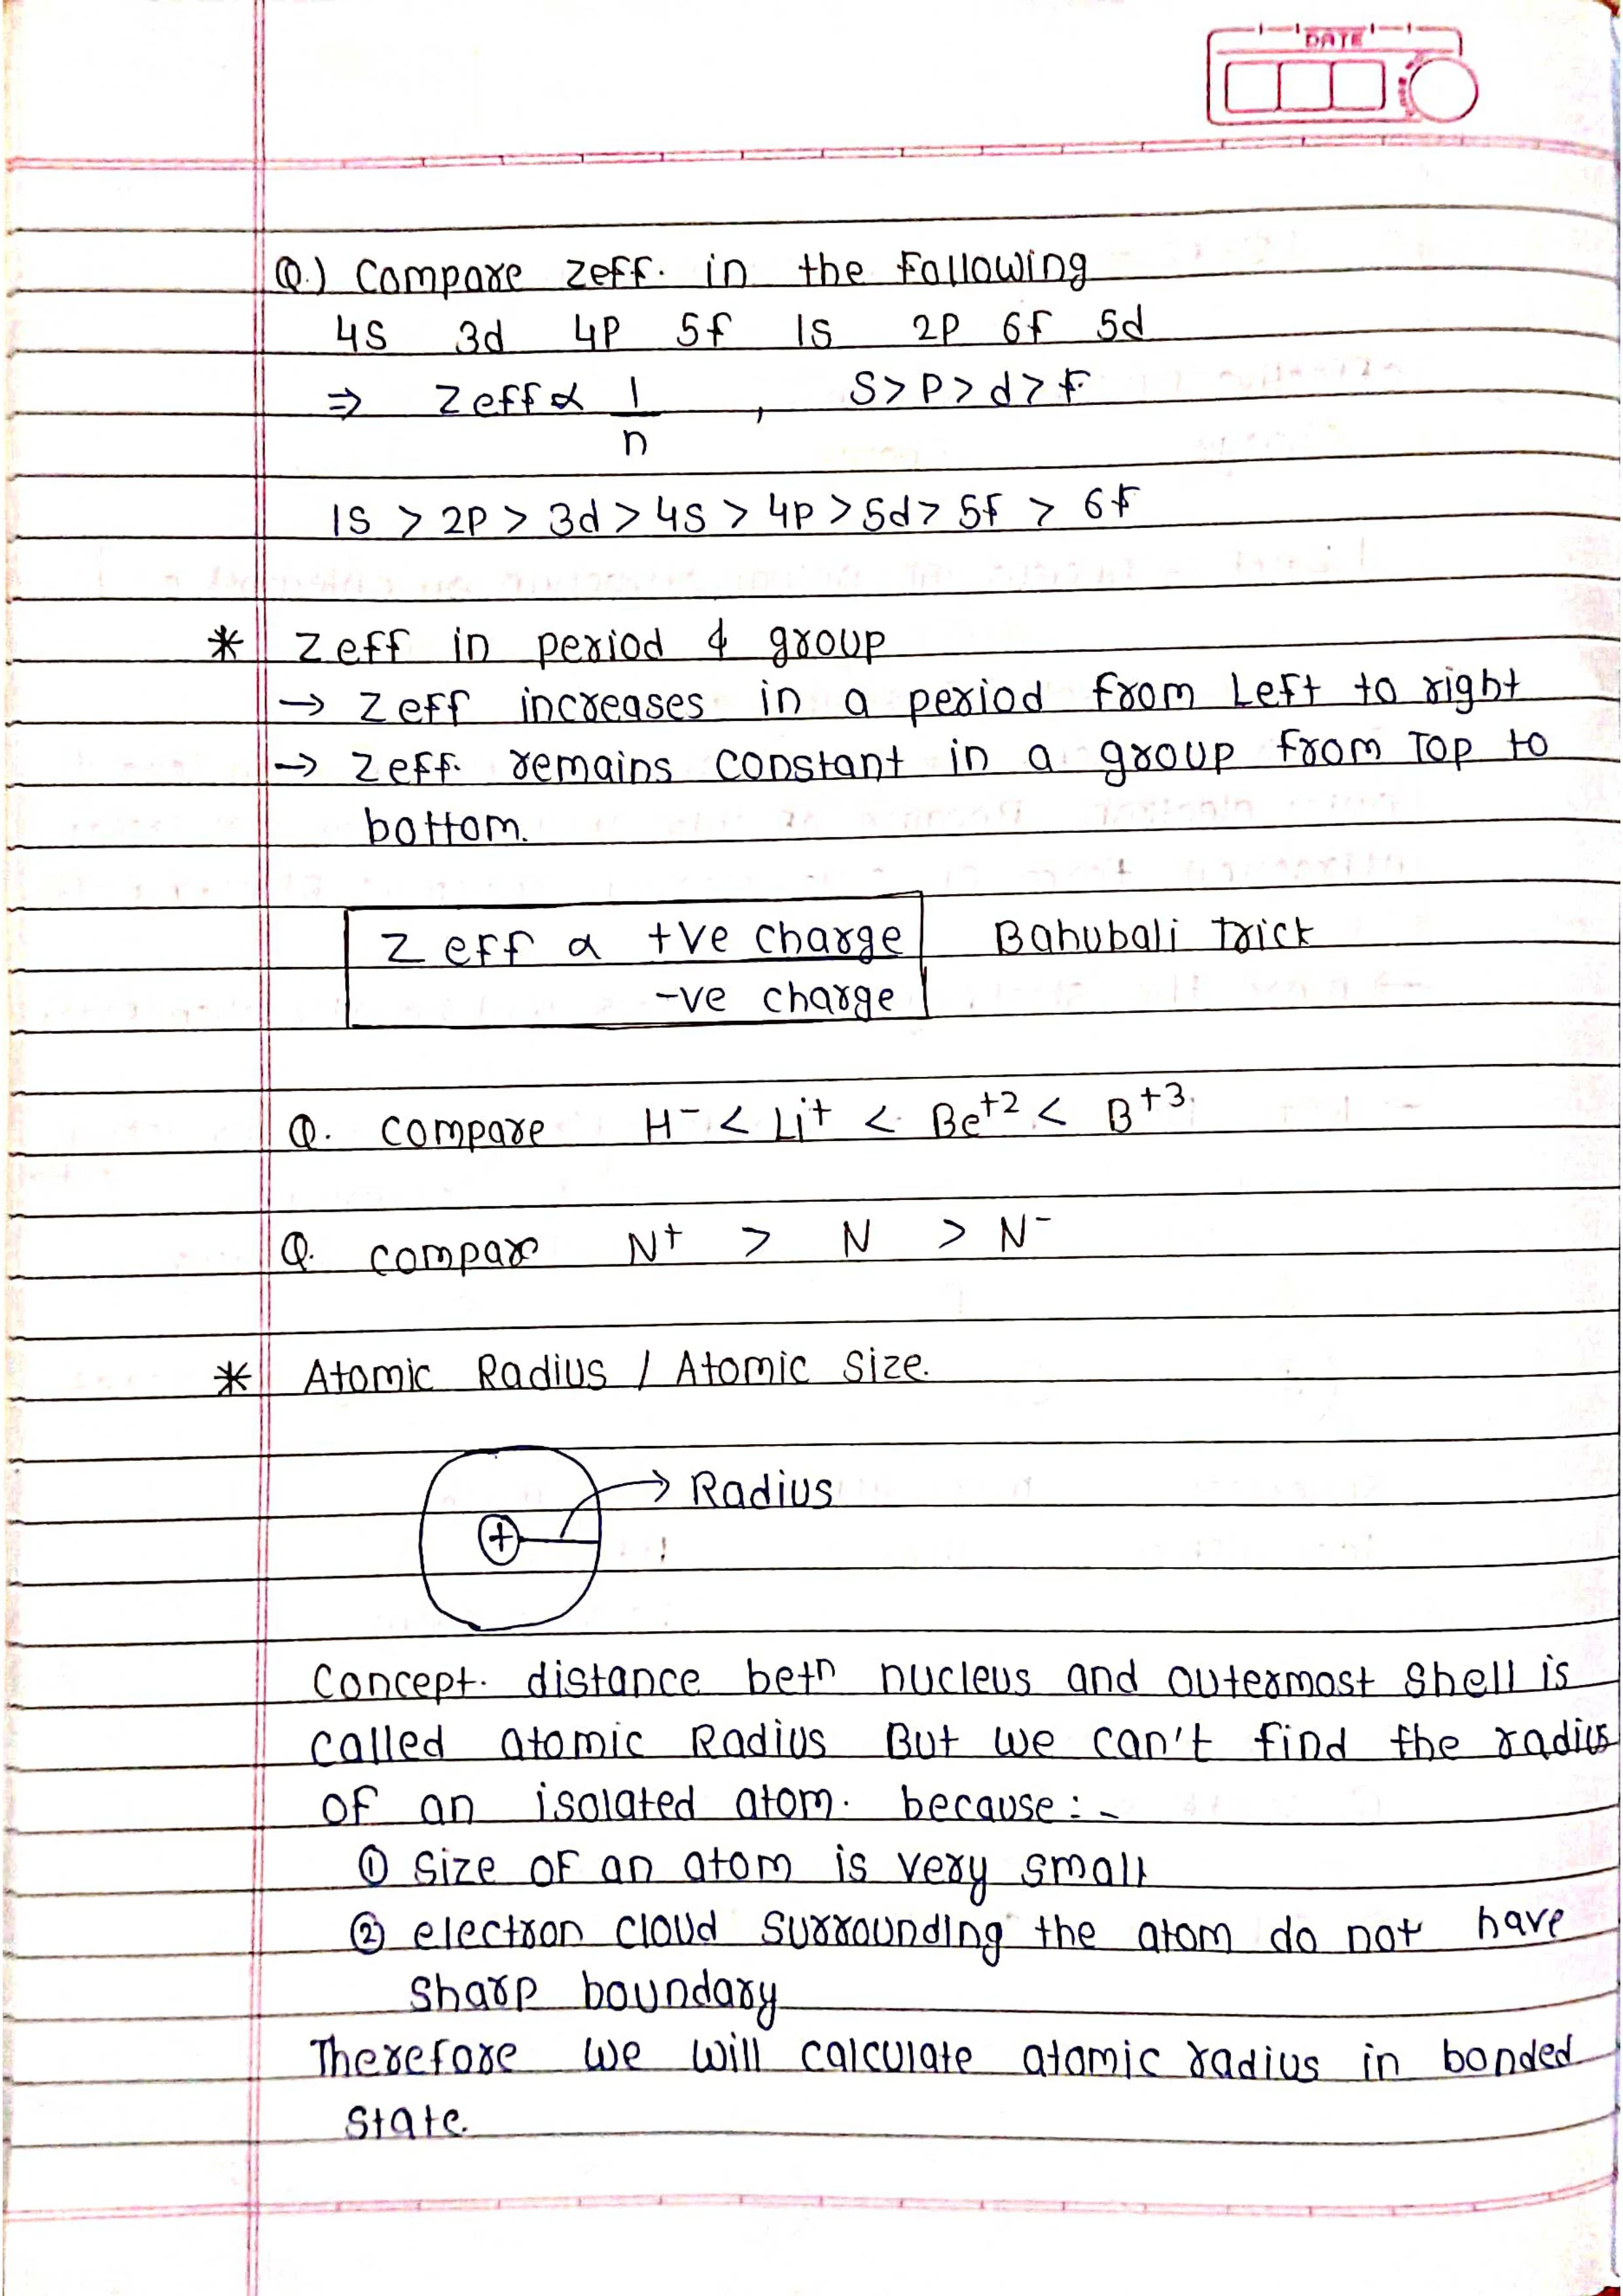 DATE
Q.) Compare Zeff. in the Following
4S 3d 4P 5f 1S 2P 6f 5d
⇒ Zeff α 1/n , S>P>d>F
1S > 2P > 3d > 4S > 4P > 5d > 5f > 6f
* Zeff in period & group
→ Zeff increases in a period from Left to right
→ Zeff. remains constant in a group from Top to
bottom.
Z eff α +ve charge Bahubali Trick
-ve charge
Q. compare H⁻ < Li⁺ < Be⁺² < B⁺³.
Q. compare N⁺ > N > N⁻
* Atomic Radius / Atomic Size.
→ Radius
+
Concept. distance betⁿ nucleus and outermost shell is
called atomic Radius But we can't find the radius
of an isolated atom. because :-
① Size of an atom is very small
② electron cloud surrounding the atom do not have
sharp boundary
Therefore we will calculate atomic radius in bonded
state.